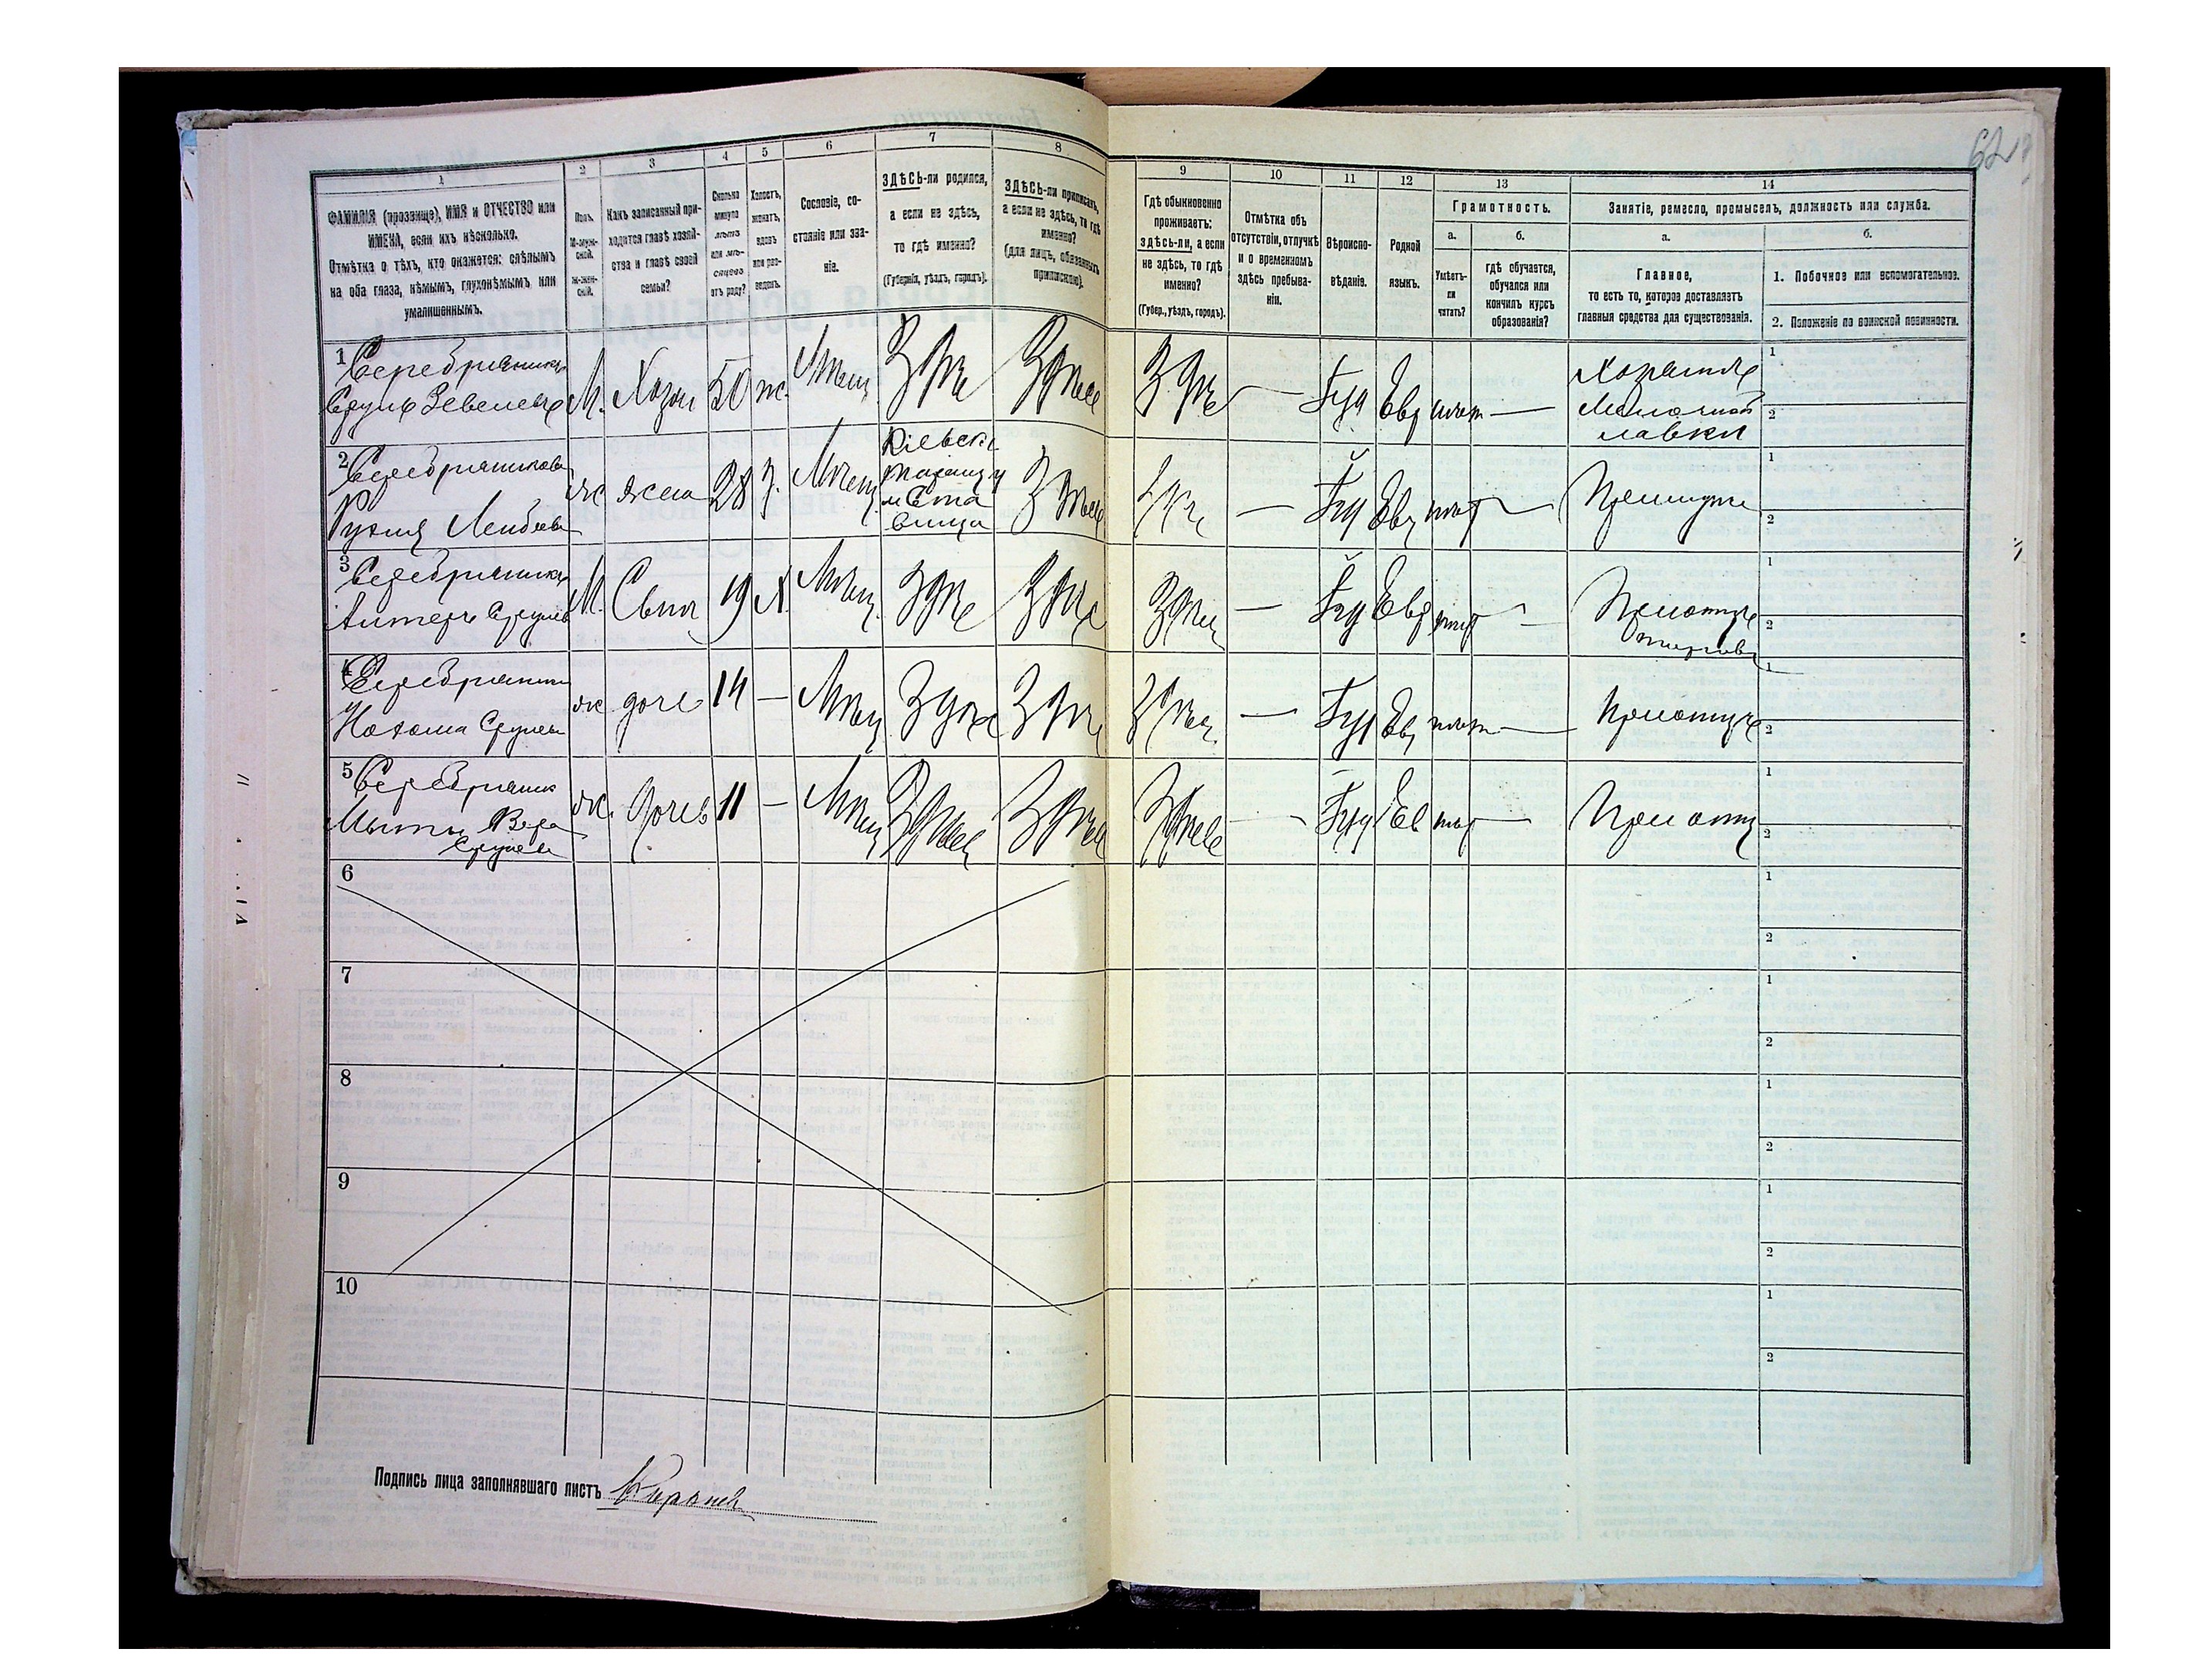 62
1
ФАМИЛІЯ (прозвище), ИМЯ и ОТЧЕСТВО или
ИМЕНА, если ихъ нѣсколько.
Отмѣтка о тѣхъ, кто окажется: слѣпымъ
на оба глаза, нѣмымъ, глухонѣмымъ или
умалишеннымъ.
2
Полъ.
М-муж-
ской.
Ж-жен-
скій.
3
Какъ записанный при-
ходится главѣ хозяй-
ства и главѣ своей
семьи?
4
Сколько
минуло
лѣтъ
или мѣ-
сяцевъ
отъ роду?
5
Холостъ,
женатъ,
вдовъ
или раз-
веденъ.
6
Сословіе, со-
стояніе или зва-
ніе.
7
ЗДѢСЬ-ли родился,
а если не здѣсь,
то гдѣ именно?
(Губернія, уѣздъ, городъ).
8
ЗДѢСЬ-ли приписанъ,
а если не здѣсь, то гдѣ
именно?
(для лицъ, обязанныхъ
припискою).
9
Гдѣ обыкновенно
проживаетъ:
здѣсь-ли, а если
не здѣсь, то гдѣ
именно?
(Губер., уѣздъ, городъ).
10
Отмѣтка объ
отсутствіи, отлучкѣ
и о временномъ
здѣсь пребыва-
ніи.
11
Вѣроиспо-
вѣданіе.
12
Родной
языкъ.
13
Грамотность.
а.
Умѣетъ-
ли
читать?
б.
гдѣ обучается,
обучался или
кончилъ курсъ
образованія?
14
Занятіе, ремесло, промыселъ, должность или служба.
а.
Главное,
то есть то, которое доставляетъ
главныя средства для существованія.
б.
1. Побочное или вспомогательное.
2. Положеніе по воинской повинности.
1 Серебряник
Сруль Зевелевъ
М. Хозяин 50 ж. Мѣщ Здѣ Здѣсь Здѣ — Іуд Евр —
Мелочной
лавки
1
2
2 Серебряникова
Рухля Лейбова
ж жена 28 З. Мѣщ
Кіевск
Таращ у
м Ста
вища
Здѣсь — Іуд Евр — При мужѣ
1
2
3 Серебряник
Срулев
М. Сын 19 Х. Мѣщ Здѣ Здѣ Здѣ — Іуд Евр — При отцѣ
1
2
4 Серебряник
Срулев
ж дочь 14 — Мѣщ Здѣ Здѣ Здѣ — Іуд Ев — При отцѣ
1
2
5 Серебряник
Срулев
ж. дочь 11 — Мѣщ Здѣс Здѣс Здѣсь — Іуд Ев — При отц
1
2
6
1
2
7
1
2
8
1
2
9
1
2
10
1
2
Подпись лица заполнявшаго листъ